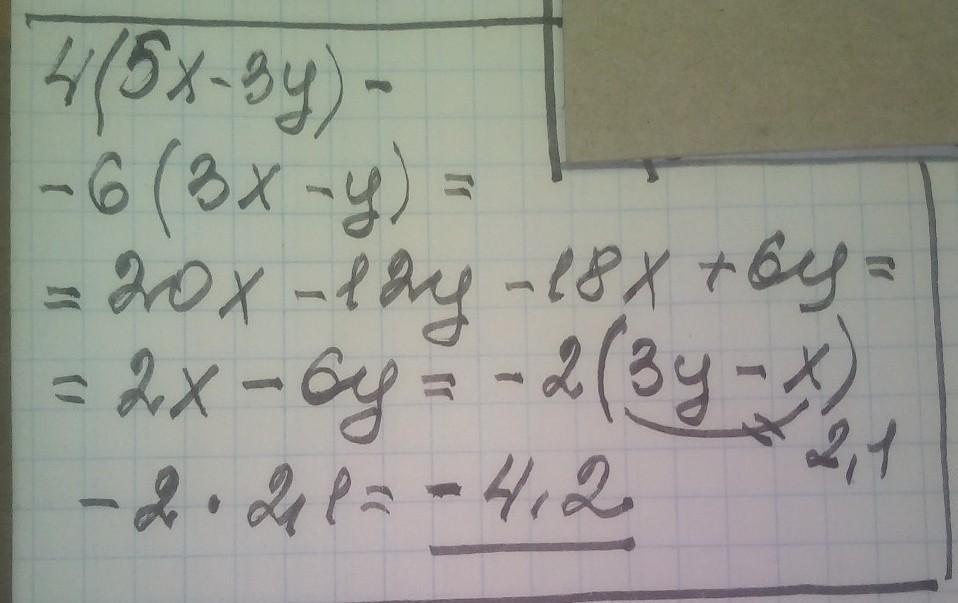 4(5x-3y)-
-6(3x-y)=
=20x-12y-18x+6y=
=2x-6y=-2(3y-x)
2,1
-2·2,1=-4,2